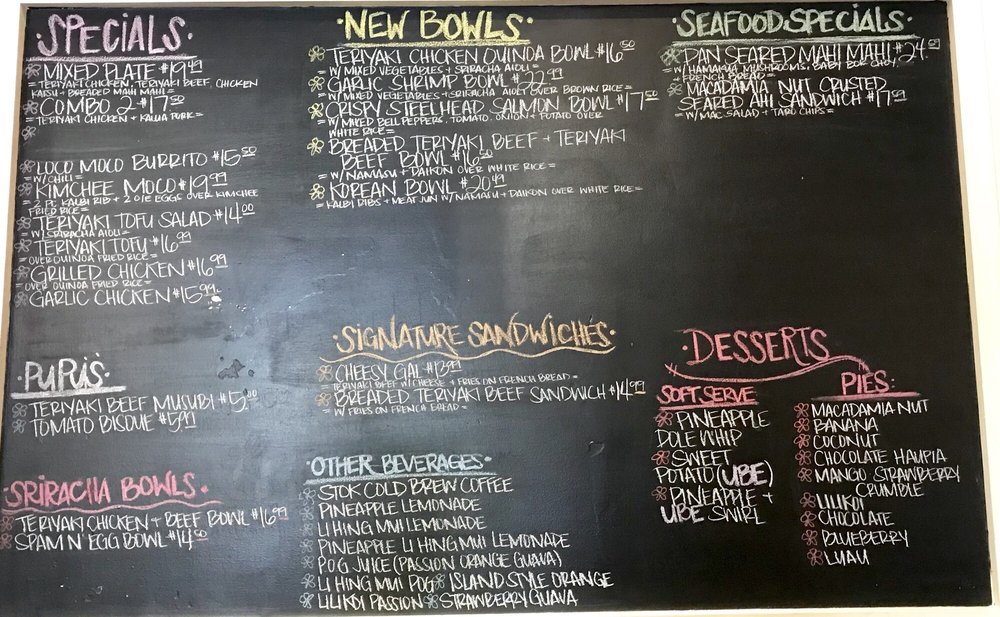 SPECIALS
MIXED PLATE $19.49
= TERIYAKI CHICKEN, TERIYAKI BEEF, CHICKEN
KATSU + BREADED MAHI MAHI =
COMBO 2 $17.50
= TERIYAKI CHICKEN + KALUA PORK =
LOCO MOCO BURRITO $15.50
= W/ CHILI =
KIMCHEE MOCO $19.99
= 2 PC KALBI RIB + 2 O/E EGGS OVER KIMCHEE
FRIED RICE =
TERIYAKI TOFU SALAD $14.00
= W/ SRIRACHA AIOLI =
TERIYAKI TOFU $16.99
= OVER QUINOA FRIED RICE =
GRILLED CHICKEN $16.99
OVER QUINOA FRIED RICE =
GARLIC CHICKEN $15.99
PUPUS
TERIYAKI BEEF MUSUBI $5.
TOMATO BISQUE $5.
SRIRACHA BOWLS
TERIYAKI CHICKEN + BEEF BOWL $16.99
SPAM N' EGG BOWL $14.50
NEW BOWLS
TERIYAKI CHICKEN QUINOA BOWL $16.50
= W/ MIXED VEGETABLES + SRIRACHA AIOLI =
GARLIC SHRIMP BOWL $22.99
= W/ MIXED VEGETABLES + SRIRACHA AIOLI OVER BROWN RICE =
CRISPY STEELHEAD SALMON BOWL $17.50
= W/ MIXED BELL PEPPERS, TOMATO, ONION + POTATO OVER
WHITE RICE =
BREADED TERIYAKI BEEF + TERIYAKI
BEEF BOWL $16.50
= W/ NAMASU + DAIKON OVER WHITE RICE =
KOREAN BOWL $20.49
= KALBI RIBS + MEAT JUN W/ NAMASU + DAIKON OVER WHITE RICE =
SIGNATURE SANDWICHES
CHEESY GAL $13.99
TERIYAKI BEEF W/ CHEESE + FRIES ON FRENCH BREAD =
BREADED TERIYAKI BEEF SANDWICH $14.99
= W/ FRIES ON FRENCH BREAD =
OTHER BEVERAGES
STOK COLD BREW COFFEE
PINEAPPLE LEMONADE
LI HING MUI LEMONADE
PINEAPPLE LI HING MUI LEMONADE
POG JUICE (PASSION ORANGE GUAVA)
LI HING MUI POG ISLAND STYLE ORANGE
LILIKOI PASSION STRAWBERRY GUAVA
SEAFOOD SPECIALS
PAN SEARED MAHI MAHI $24.
W/ HAMAKUA MUSHROOMS, BABY BOK CHOY,
FRENCH BREAD =
MACADAMIA NUT CRUSTED
SEARED AHI SANDWICH $17.99
= W/ MAC SALAD + TARO CHIPS =
DESSERTS
SOFT SERVE
PINEAPPLE
DOLE WHIP
SWEET
POTATO (UBE)
PINEAPPLE +
UBE SWIRL
PIES:
MACADAMIA NUT
BANANA
COCONUT
CHOCOLATE HAUPIA
MANGO STRAWBERRY
CRUMBLE
LILIKOI
CHOCOLATE
BLUEBERRY
LUAU